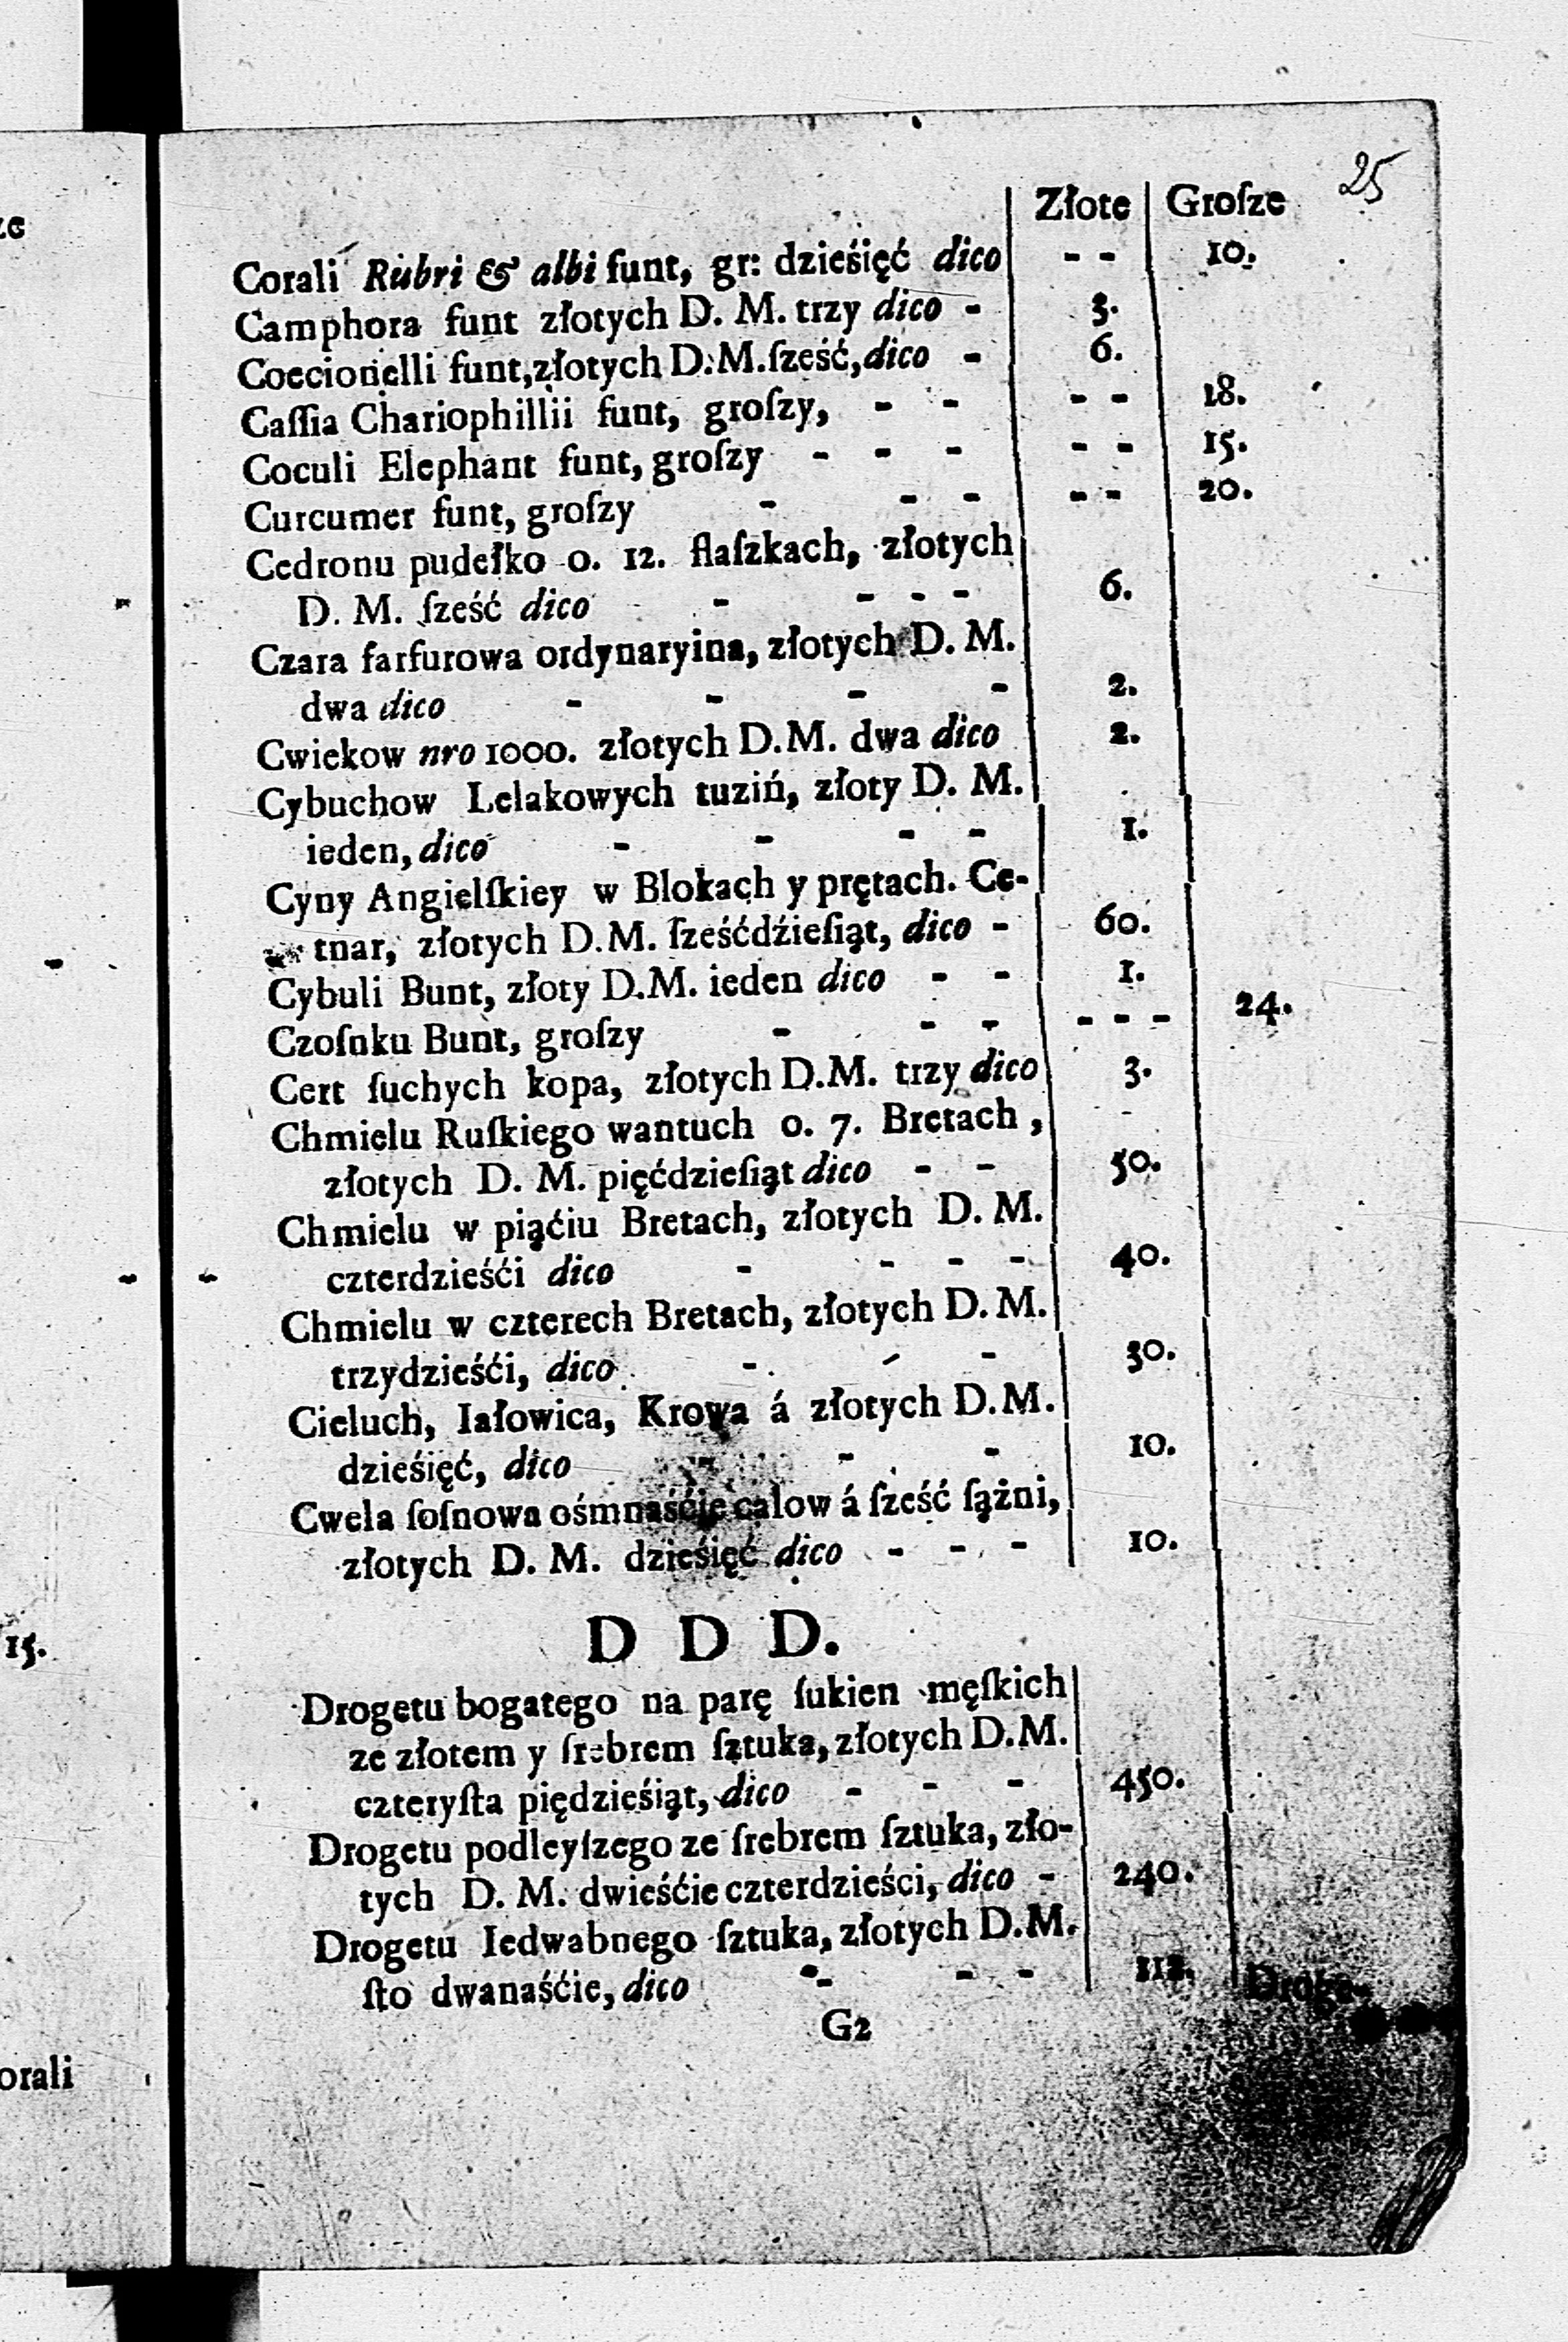 25
Złote | Groſze
Corali Rubri & albi funt, gr: dzieśięć dico - - 10.
Camphora funt złotych D. M. trzy dico - 3.
Coccionelli funt, złotych D. M. ſześć, dico - 6.
Caſſia Chariophillii funt, groſzy, - - - - 18.
Coculi Elephant funt, groſzy - - - - - 15.
Curcumer funt, groſzy - - - - - 20.
Cedronu pudełko o. 12. flaſzkach, złotych
D. M. ſześć dico - - - - 6.
Czara farfurowa ordynaryina, złotych D. M.
dwa dico - - - - 2.
Cwiekow nro 1000. złotych D.M. dwa dico 2.
Cybuchow Lelakowych tuziń, złoty D. M.
ieden, dico - - - - 1.
Cyny Angielſkiey w Blokach y prętach. Ce-
tnar, złotych D.M. ſześćdźieſiąt, dico - 60.
Cybuli Bunt, złoty D.M. ieden dico - - 1.
Czoſnku Bunt, groſzy - - - - - - 24.
Cert ſuchych kopa, złotych D.M. trzy dico 3.
Chmielu Ruſkiego wantuch o. 7. Bretach,
złotych D. M. pięćdzieſiąt dico - - 50.
Chmielu w piąćiu Bretach, złotych D. M.
czterdzieśći dico - - - - 40.
Chmielu w czterech Bretach, złotych D. M.
trzydzieśći, dico - - - 30.
Cieluch, Iałowica, Krowa á złotych D.M.
dzieśięć, dico - - - 10.
Cwela ſoſnowa ośmnaśćie calow á ſześć ſążni,
złotych D. M. dzieśięć dico - - - 10.
D D D.
Drogetu bogatego na parę ſukien męſkich
ze złotem y ſrebrem ſztuka, złotych D.M.
czteryſta piędzieśiąt, dico - - - 450.
Drogetu podleyſzego ze ſrebrem ſztuka, zło-
tych D. M. dwieśćie czterdzieści, dico - 240.
Drogetu Iedwabnego ſztuka, złotych D.M.
ſto dwanaśćie, dico - - - 112.
G2 Droge-
15.
orali